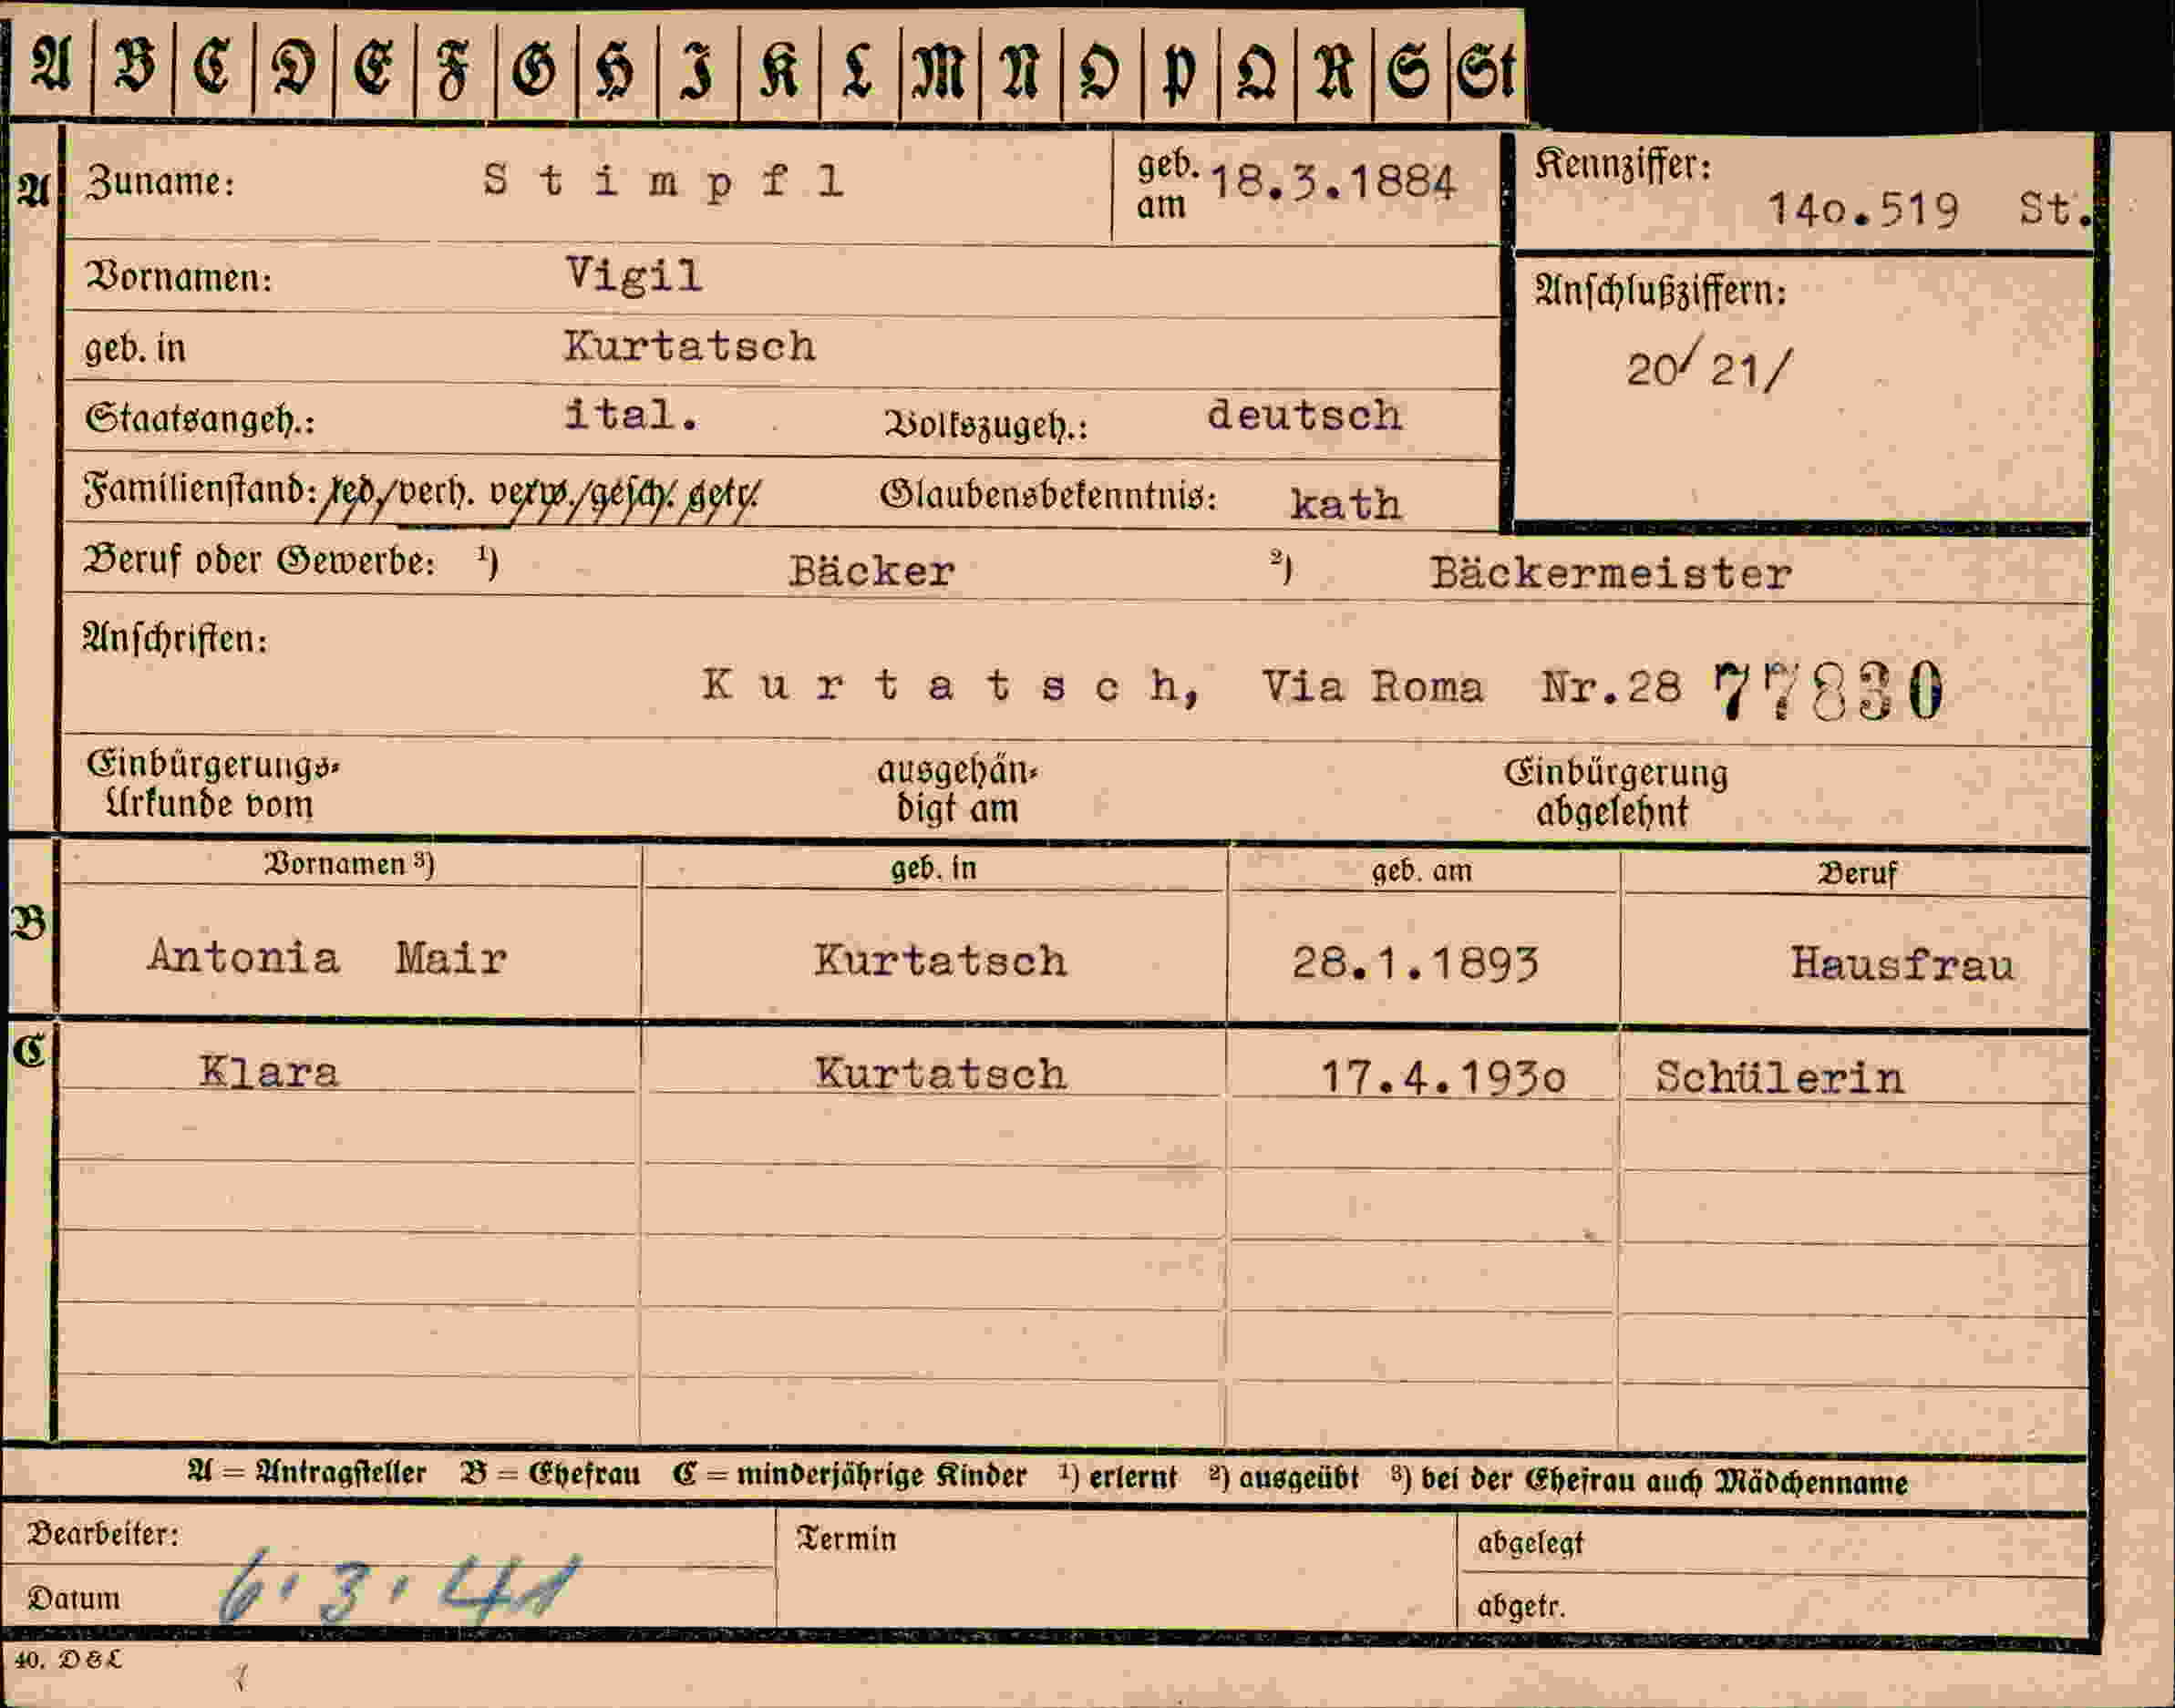 A B C D E F G H I K L M N O P Q R S St
A Zuname: Stimpfl geb. am 18.3.1884 Kennziffer: 14o.519 St.
Vornamen: Vigil
Anschlußziffern:
geb. in Kurtatsch
20/ 21/
Staatsangeh.: ital. Volkszugeh.: deutsch
Familienstand: led./verh. verw./gesch. getr. Glaubensbekenntnis: kath
Beruf oder Gewerbe: 1) Bäcker 2) Bäckermeister
Anschriften:
Kurtatsch, Via Roma Nr.28 77830
Einbürgerungs- ausgehän- Einbürgerung
Urkunde vom digt am abgelehnt
Vornamen 3) geb. in geb. am Beruf
B
Antonia Mair Kurtatsch 28.1.1893 Hausfrau
C
Klara Kurtatsch 17.4.193o Schülerin
A = Antragsteller B = Ehefrau C = minderjährige Kinder 1) erlernt 2) ausgeübt 3) bei der Ehefrau auch Mädchenname
Bearbeiter: Termin abgelegt
Datum 6.3.41 abgetr.
40. D&L